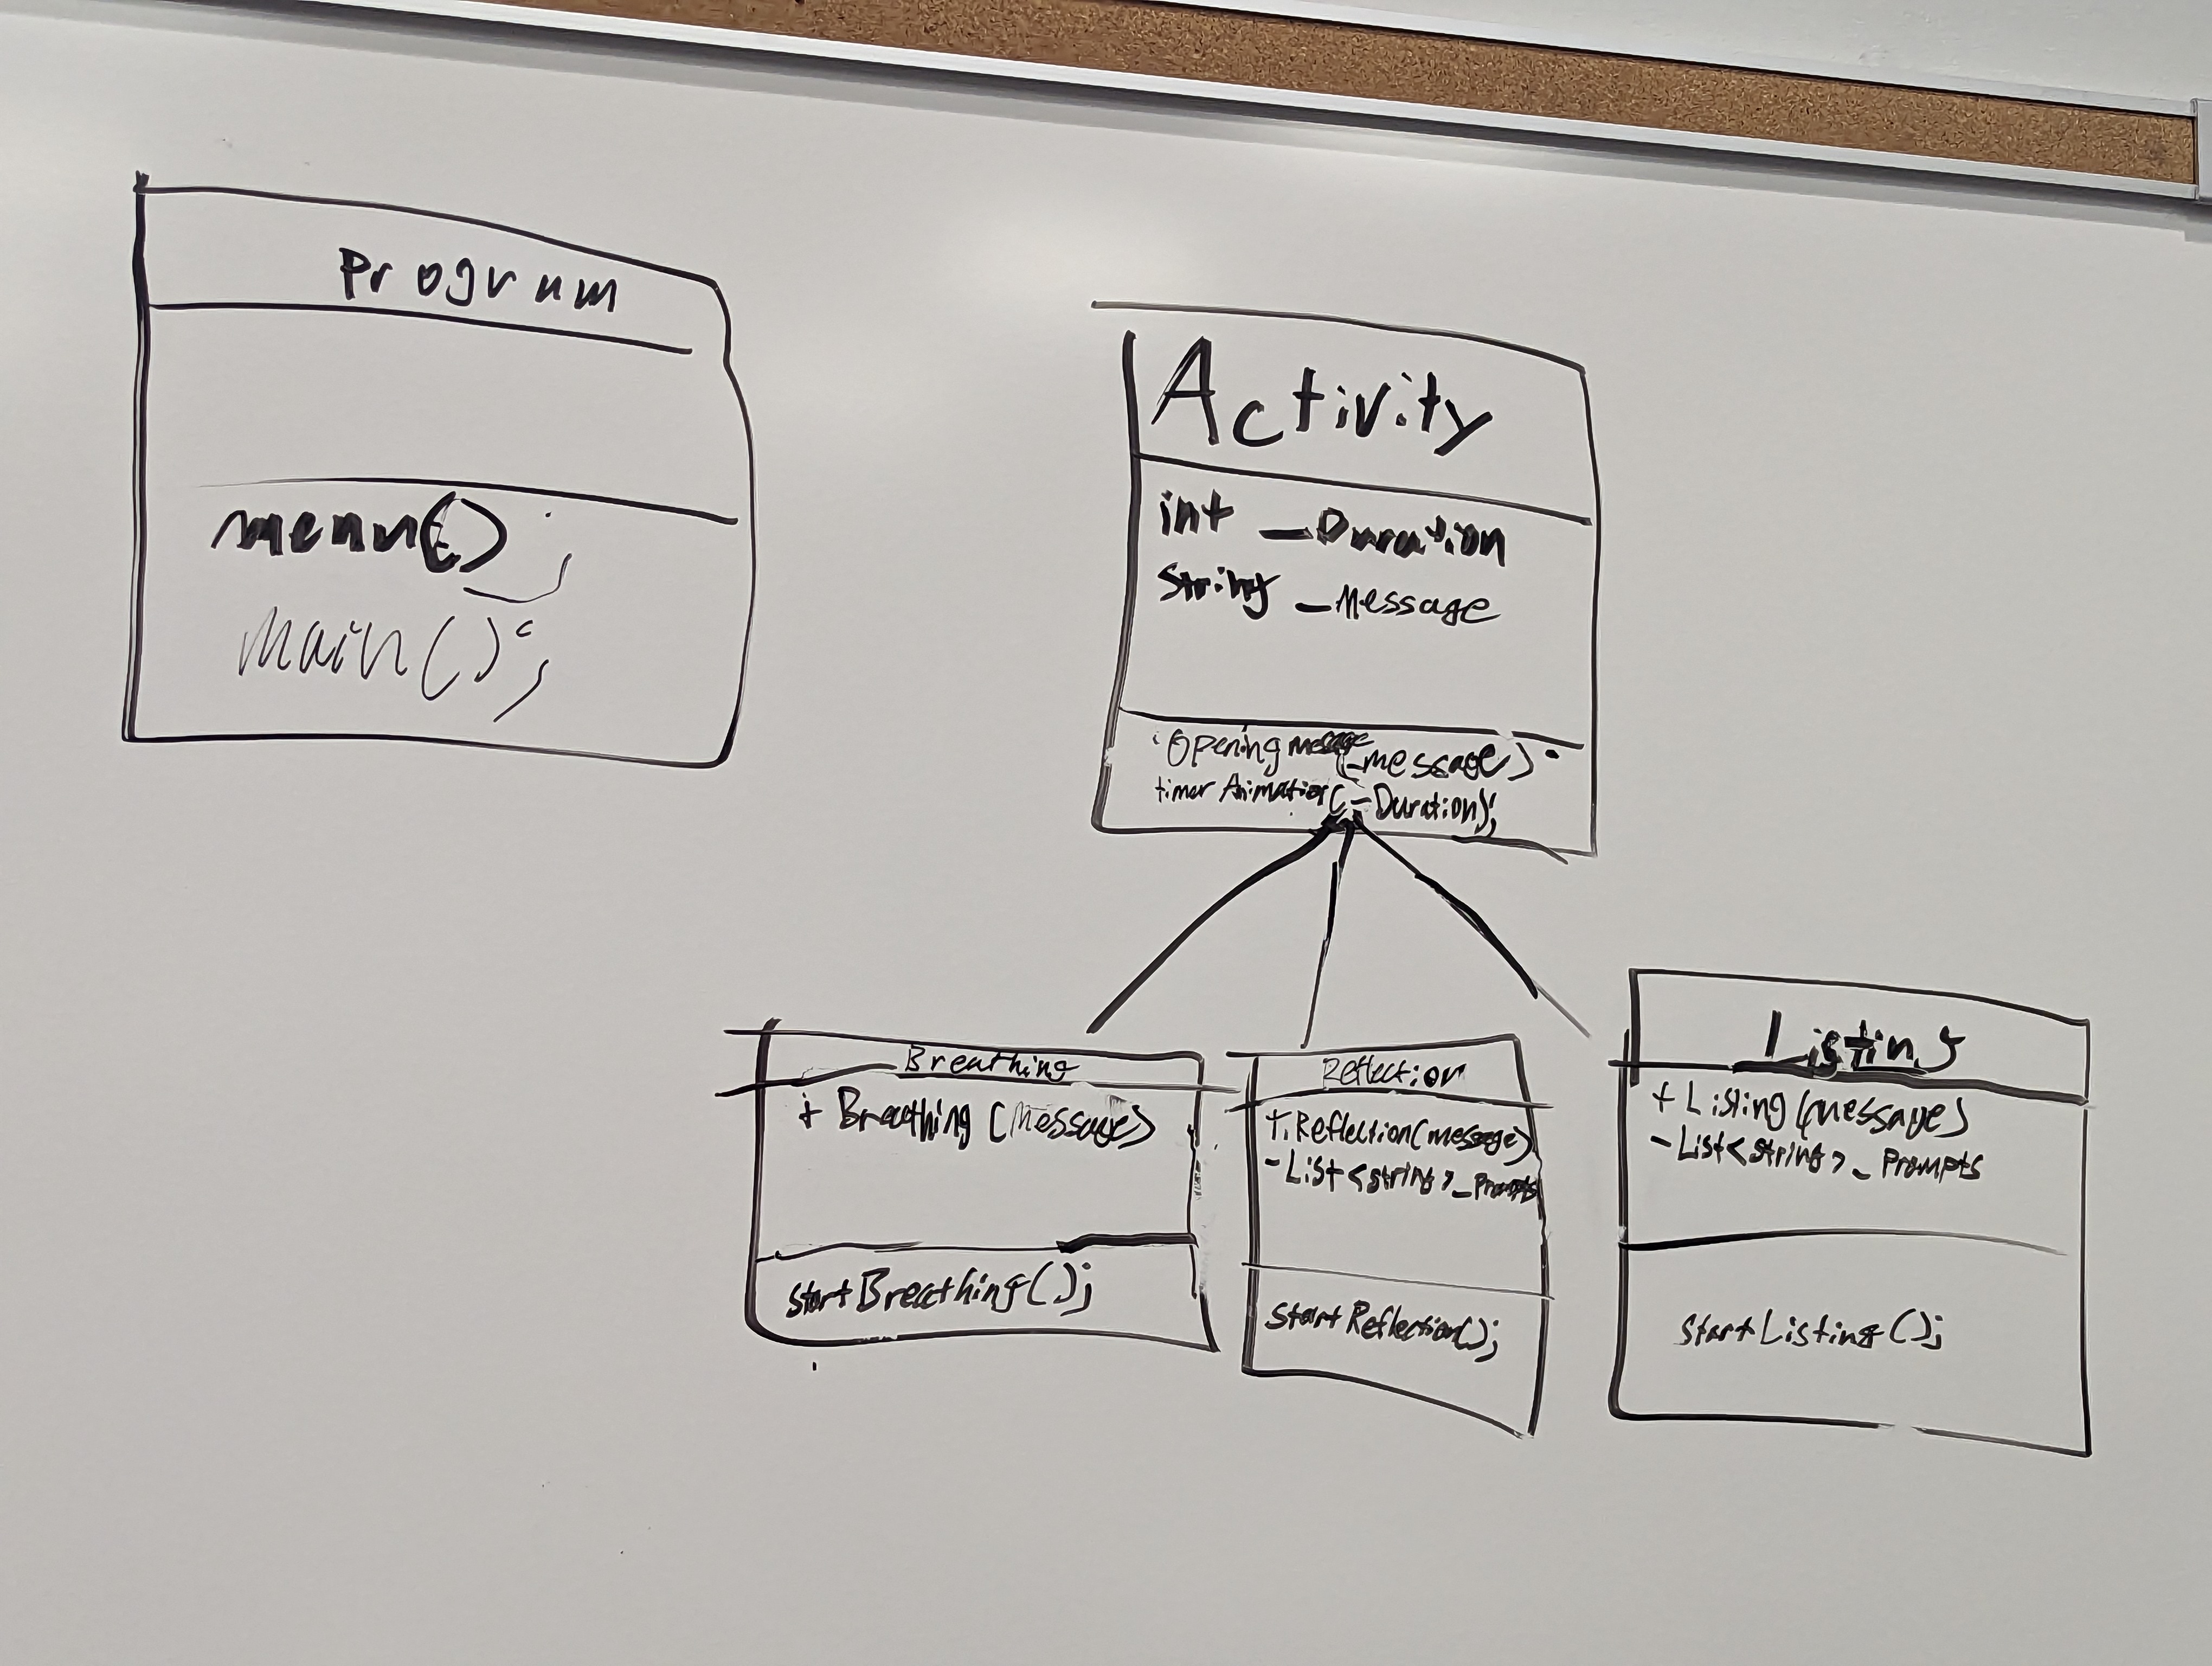 Program
menu();
main();
Activity
int _Duration
string _Message
Opening message(_message);
timer Animation(_Duration);
Breathing
+ Breathing (Message)
startBreathing();
Reflection
+ Reflection(message)
- List<string>_Prompts
startReflection();
Listing
+ Listing(message)
- List<string>_Prompts
startListing();